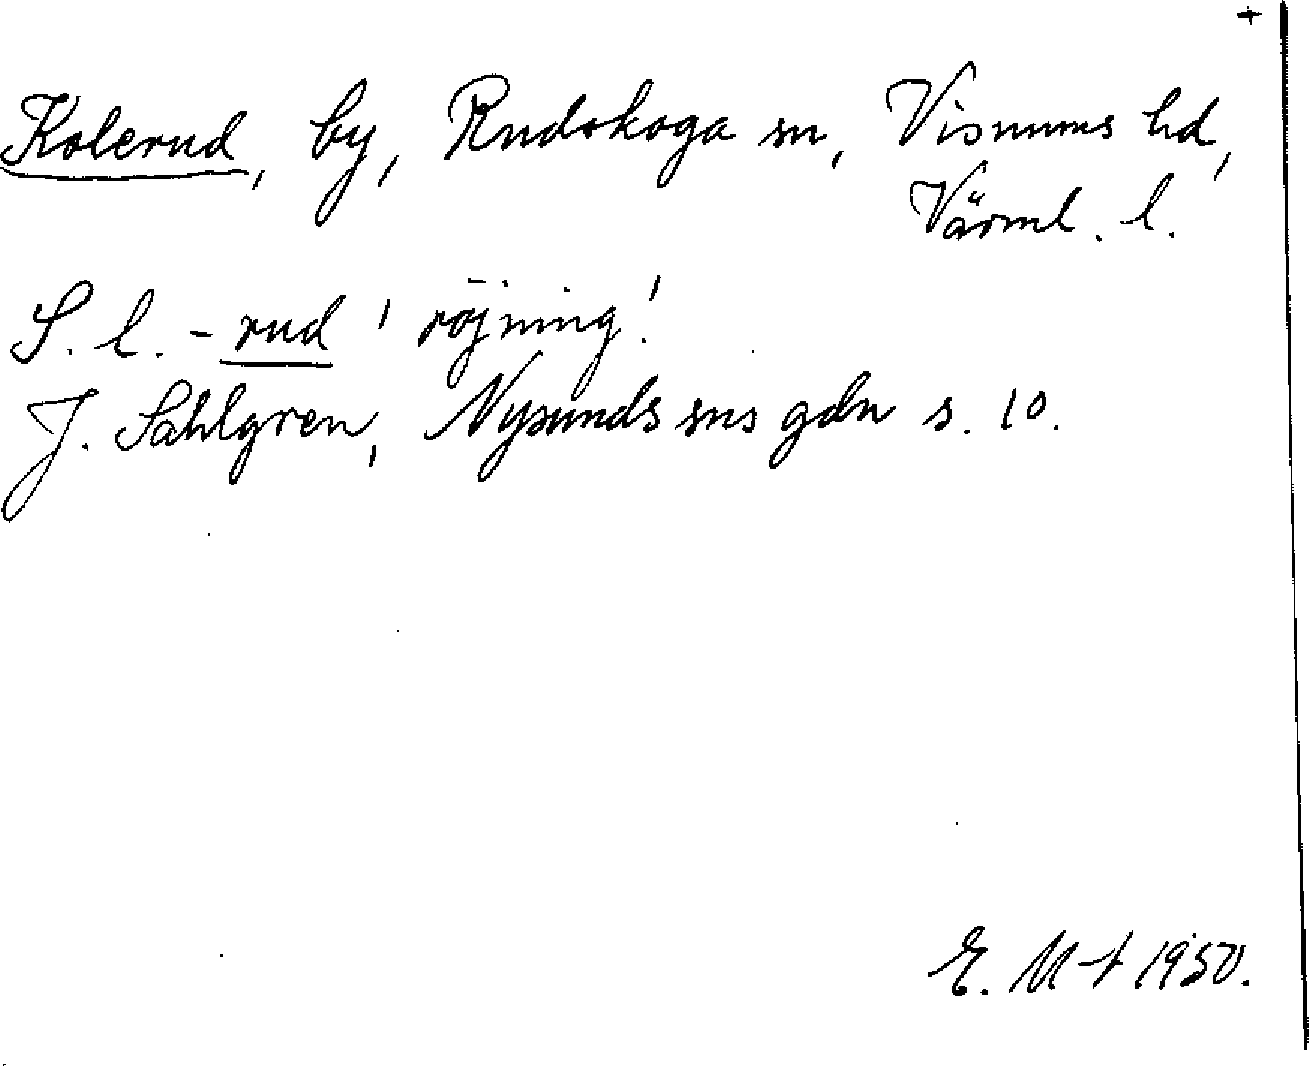 +
Kolerud, by, Rudskoga sn, Visnums hd,
Värml. l.
S. l. -rud 'röjning'.
J. Sahlgren, Nysunds sns gdn s. 10.
E. M-t 1950.